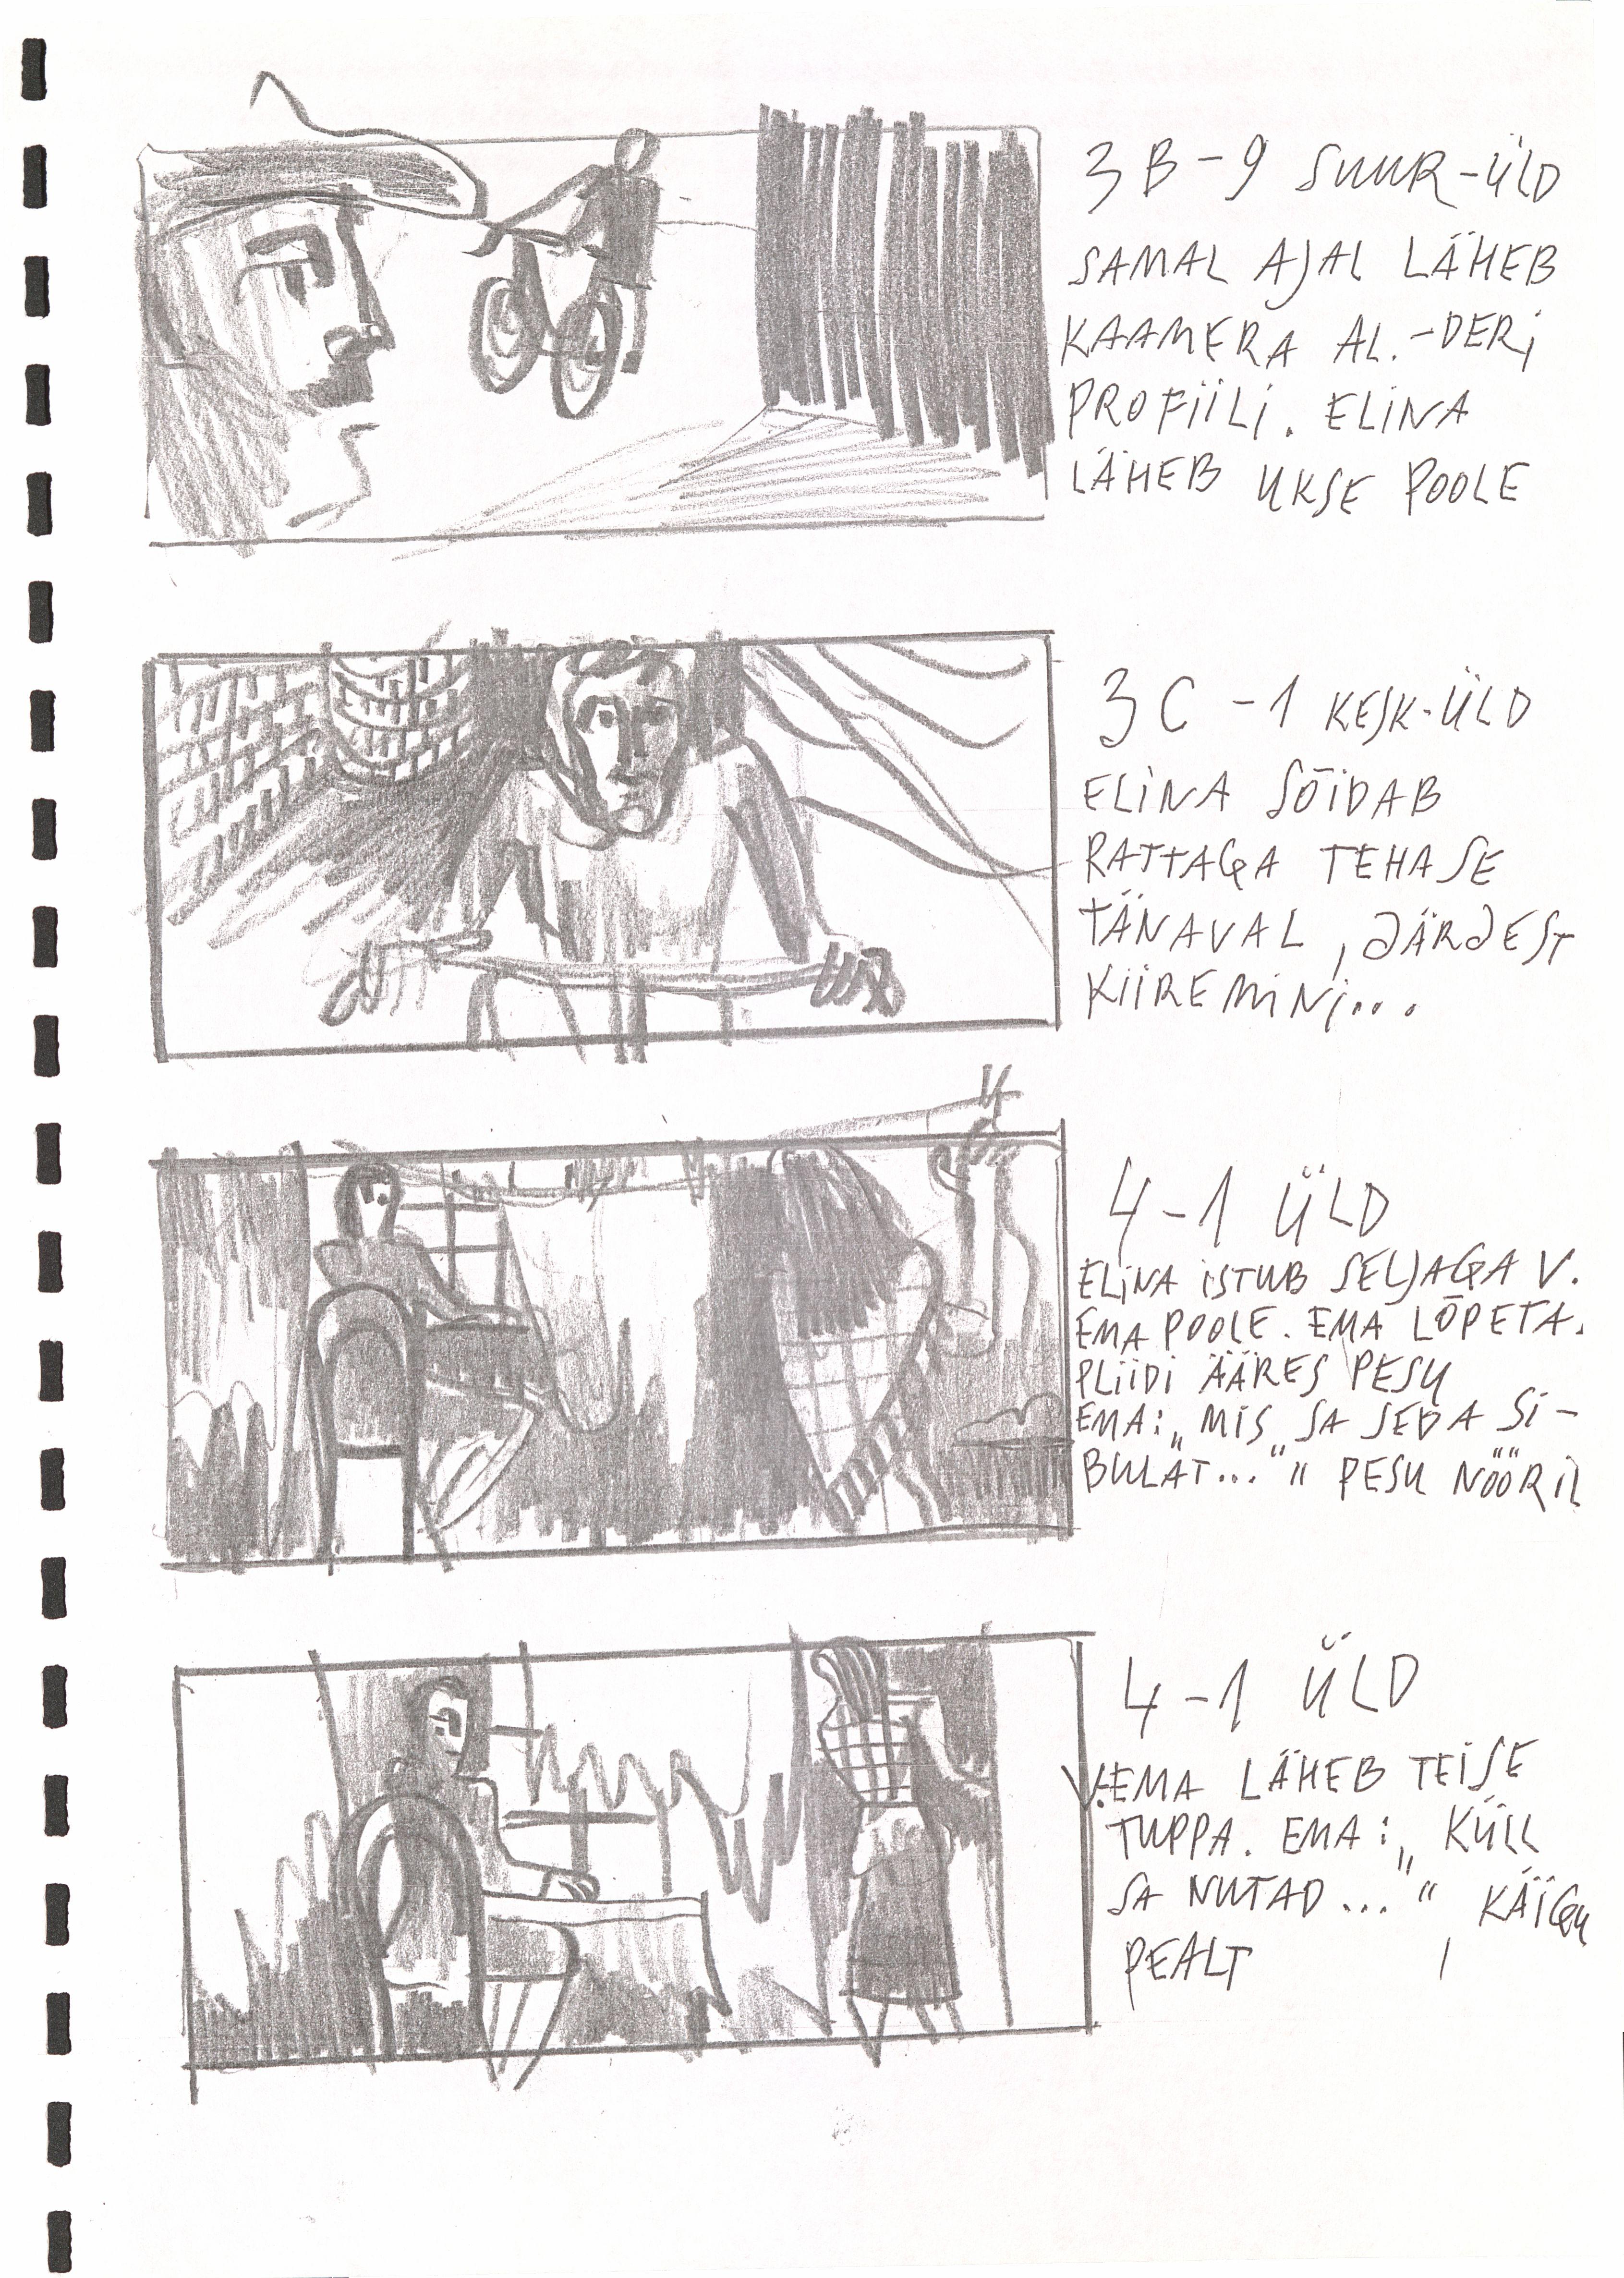 3B-9 SUUR-ÜLD
SAMAL AJAL LÄHEB
KAAMERA AL.-DERI
PROFIILI. ELINA
LÄHEB UKSE POOLE
3C -1 KESK-ÜLD
ELINA SÕIDAB
RATTAGA TEHASE
TÄNAVAL, JÄRJEST
KIIREMINI...
4-1 ÜLD
ELINA ISTUB SELJAGA V.
EMA POOLE. EMA LÕPETA.
PLIIDI ÄÄRES PESU
EMA: „MIS SA SEDA SI-
BULAT...“ PESU NÖÖRIL
4-1 ÜLD
V.EMA LÄHEB TEISE
TUPPA. EMA: „KÜLL
SA NUTAD...“ KÄIGU
PEALT